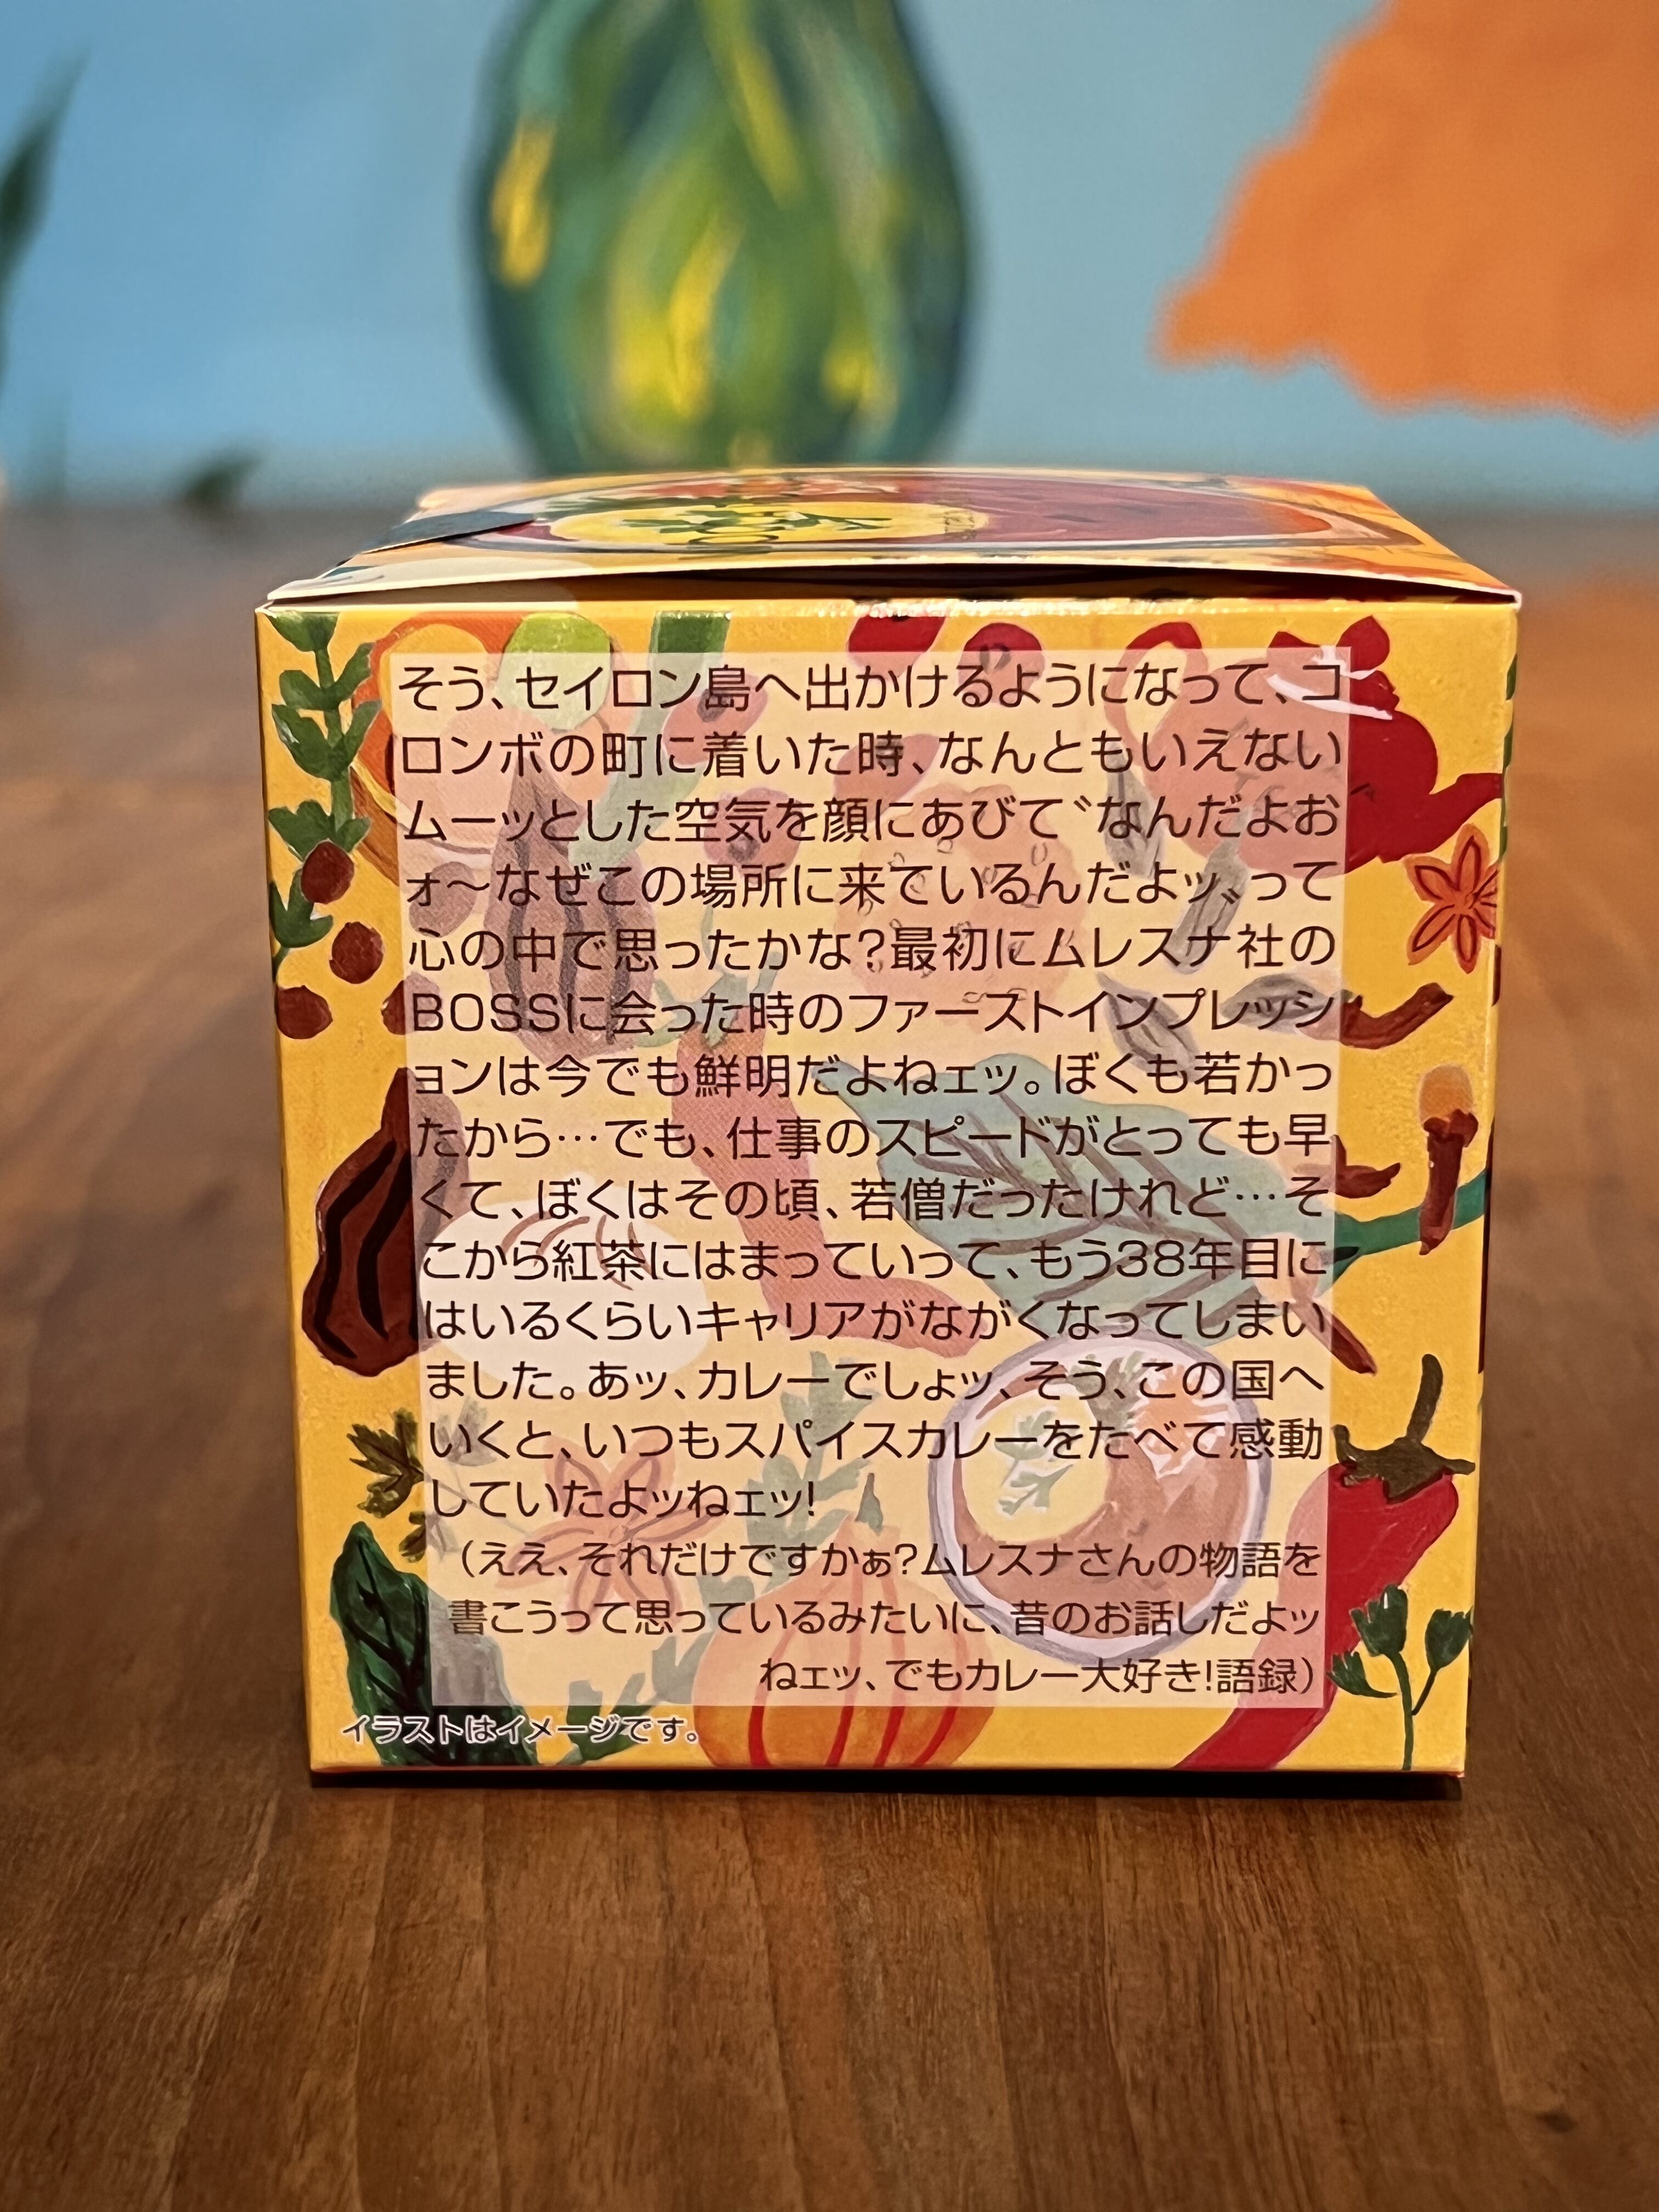 そう、セイロン島へ出かけるようになって、コ
ロンボの町に着いた時、なんともいえない
ムーッとした空気を顔にあびて〝なんだよお
ォ〜なぜこの場所に来ているんだよッ〟って
心の中で思ったかな?最初にムレスナ社の
BOSSに会った時のファーストインプレッシ
ョンは今でも鮮明だよねェッ。ぼくも若かっ
たから…でも、仕事のスピードがとっても早
くて、ぼくはその頃、若僧だったけれど…そ
こから紅茶にはまっていって、もう38年目に
はいるくらいキャリアがながくなってしまい
ました。あッ、カレーでしょッ、そう、この国へ
いくと、いつもスパイスカレーをたべて感動
していたよッねェッ!
(ええ、それだけですかぁ?ムレスナさんの物語を
書こうって思っているみたいに、昔のお話しだよッ
ねェッ、でもカレー大好き!語録)
イラストはイメージです。